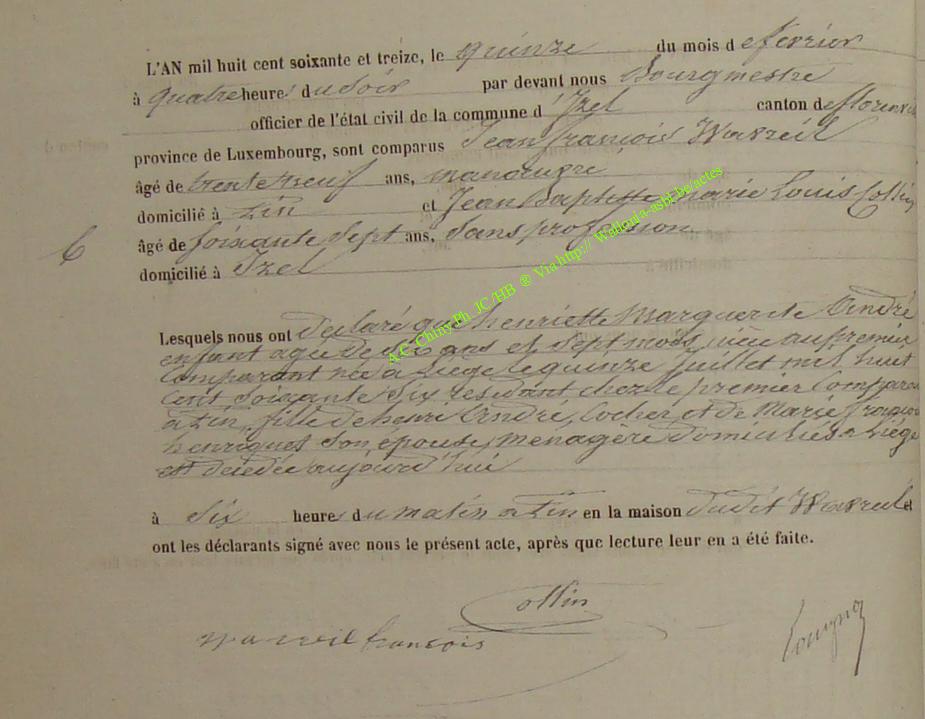 L'AN mil huit cent soixante et treize, le quinze du mois de fevrier
à quatre heures du Soir par devant nous Bourgmestre
officier de l'état civil de la commune d'Izel canton de florenvi
province de Luxembourg, sont comparus Jean françois Warril
âgé de trente neuf ans, manœuvre
domicilié à Pin et Jean Baptiste Marie Louis Collin
6
âgé de soixante sept ans, Sans profession
domicilié à Izel
Lesquels nous ont déclaré que henriette Marguerite André
enfant agée de six ans et sept mois, au premier
comparant née à Liège le quinze Juillet mil huit
cent soixante Six résidant chez le premier Comparan
à Pin, fille de henri André, Cocher et de Marie
henriques son épouse, ménagère domiciliés à Liège
est décédée aujourd'hui
à Six heure du matin à Pin en la maison dudit Warril et
ont les déclarants signé avec nous le présent acte, après que lecture leur en a été faite.
Collin
Warril françois
A.C. Chiny Ph JC/HB @ Via http:// Wallonia-asbl.be/actes